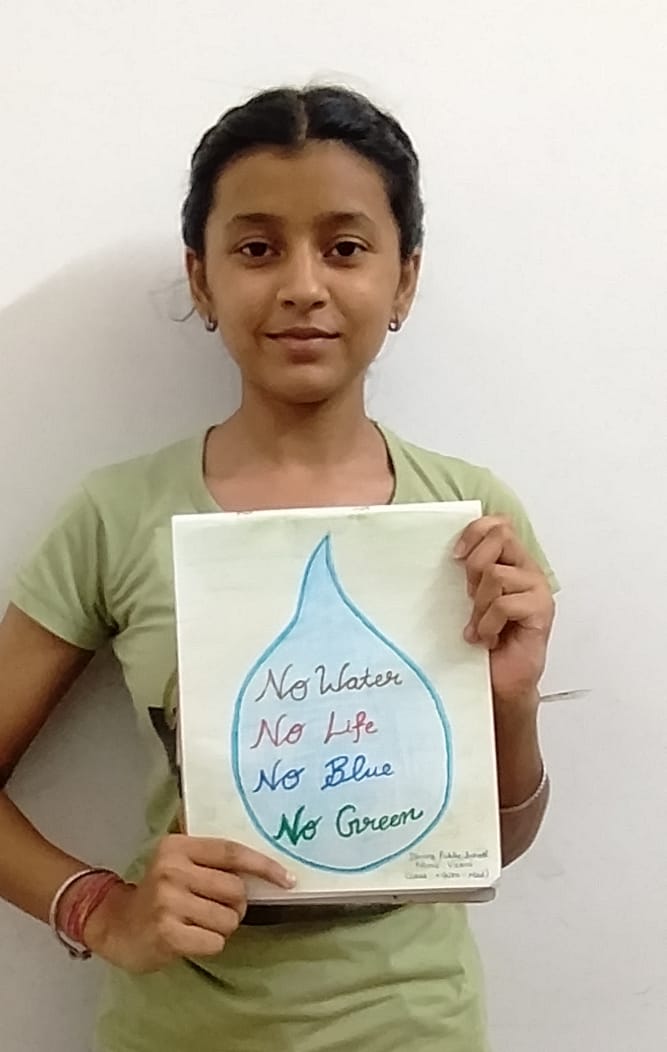 No Water
No Life
No Blue
No Green
Public School
Class